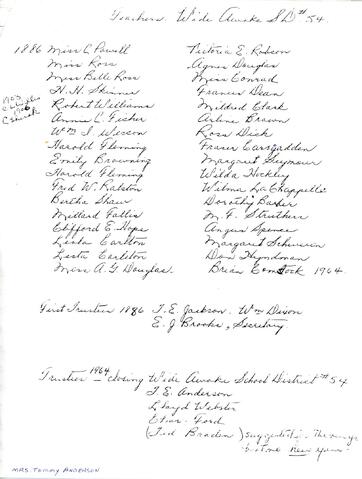 Teachers, Wide Awake S.D. #54.
1886 Miss C. Powell
Miss Ross
Miss Belle Ross
H. H. Skinner
Robert Williams
Annie L. Fisher
Wm I.
Harold Fleming
Emily Browning
Harold Fleming
Fred W. Ralston
Bertha Shaw
Millard Fallis
Clifford E. Hope
Lesta Carlton
Lesta Carlton
Miss A. G. Douglas.
1903
Church
Victoria E. Robson
Agnes Douglas
Miss Conrad
Frances Dean
Mildred Clark
Arlene Brown
Rosa Dick
Fraser Carsgadden
Margaret Seymour
Wilda Hockley
Wilma La Chappelle
Dorothy Baxter
M. F. Struthers
Angus Spence
Margaret
Don Thyndman
Brian Comstock 1964.
First Trustees 1886 T. E. Jackson. Wm Dixon
E. J. Brooks, Secretary
Trustees 1964 - closing Wide Awake School District #54
T. E. Anderson
Lloyd Webster
Ford
(Ted Braden) suggested in the
but no New years
MRS. TOMMY ANDERSON